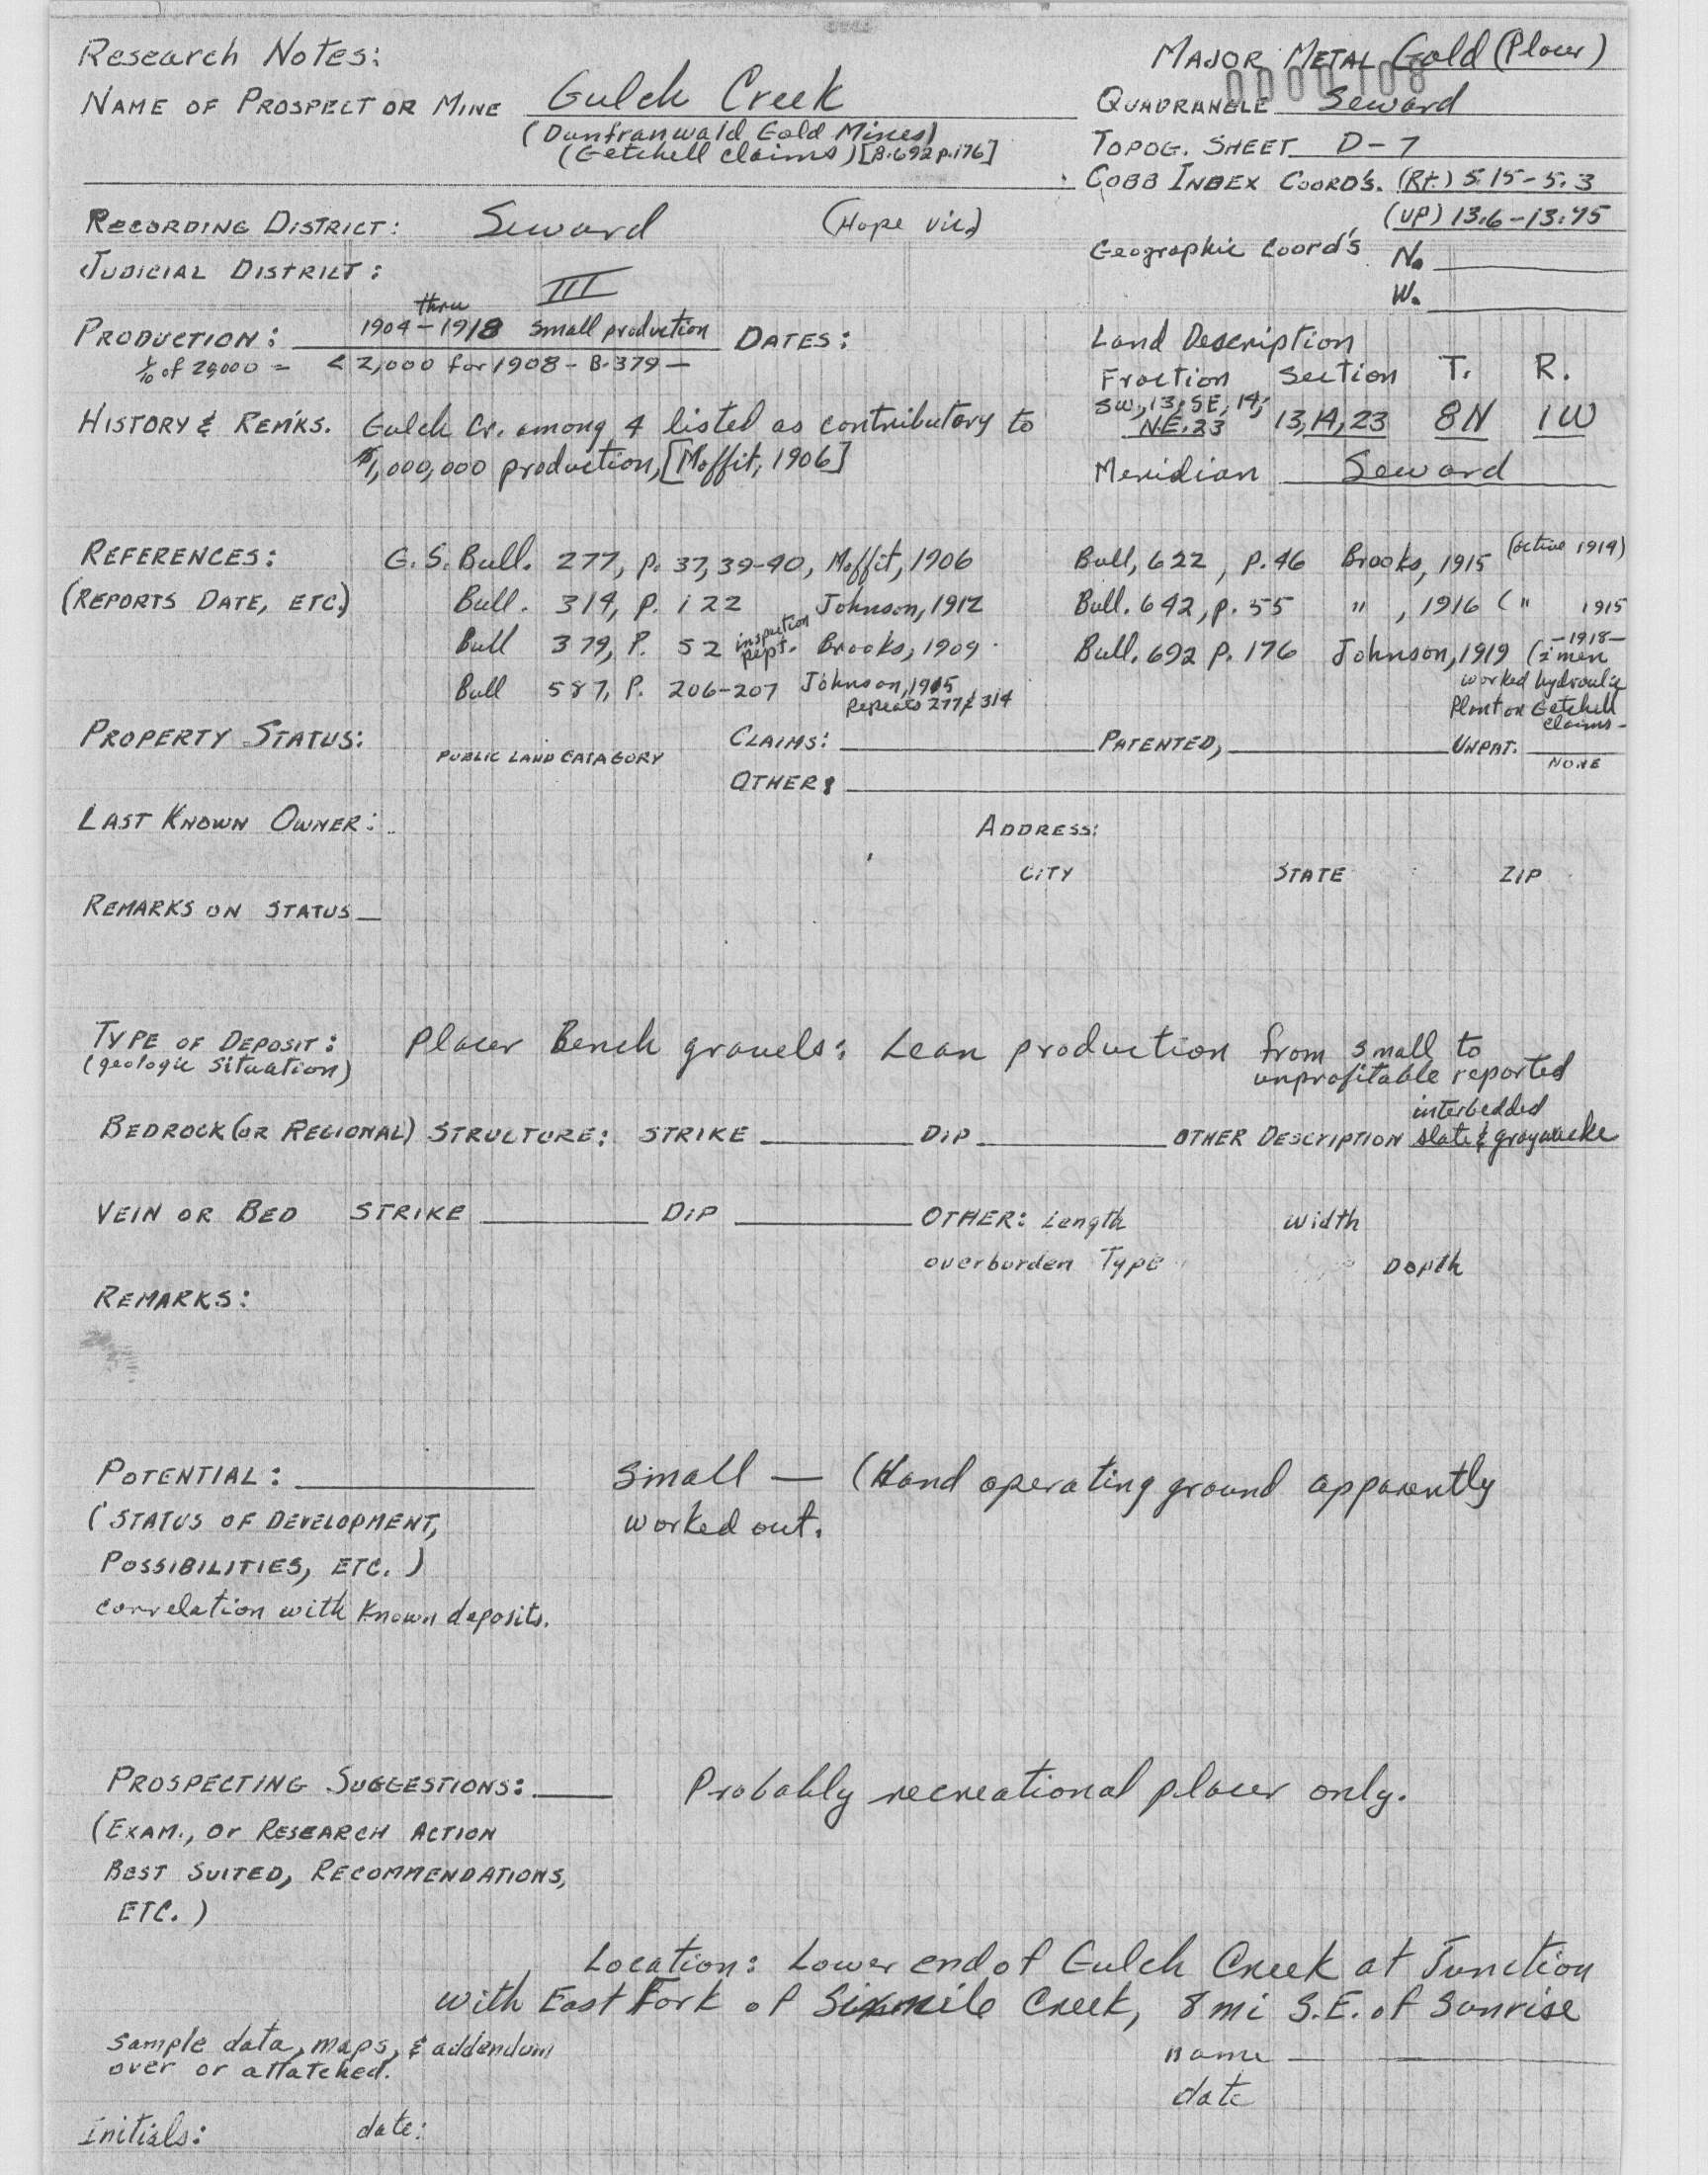 Research Notes:
MAJOR METAL Gold (Placer)
0000108
NAME OF PROSPECT OR MINE Gulch Creek
QUADRANGLE Seward
(Dunfranwald Gold Mines)
(Getchell claims) [B.692 p.176]
TOPOG. SHEET D-7
COBB INDEX COORD'S. (Rt.) 5.15-5.3
(UP) 13.6-13.75
RECORDING DISTRICT: Seward (Hope Vic.)
Geographic Coord's N.
W.
JUDICIAL DISTRICT: III
thru
PRODUCTION: 1904-1918 small production DATES:
1/10 of 20,000 = < 2,000 for 1908 - B.379 -
Land Description
Fraction Section T. R.
SW, 13, SE, 14,
N.E. 23 13, 14, 23 8N 1W
Meridian Seward
HISTORY & REMKS. Gulch Cr. among 4 listed as contributory to
$1,000,000 production, [Moffit, 1906]
REFERENCES: G.S. Bull. 277, p. 37, 39-40, Moffit, 1906
(REPORTS DATE, ETC.) Bull. 314, p. 122 Johnson, 1912
Bull 379, P. 52 inspection rept. Brooks, 1909
Bull 587, P. 206-207 Johnson, 1915
Repeats 277 & 314
Bull, 622, p. 46 Brooks, 1915 (active 1914)
Bull. 642, p. 55 " , 1916 (" 1915
Bull. 692 p. 176 Johnson, 1919 (-1918-
2 men
worked hydraulic
Plant on Getchell
claims-
PROPERTY STATUS: PUBLIC LAND CATAGORY CLAIMS: PATENTED, UNPAT.
NONE
OTHER:
LAST KNOWN OWNER: ADDRESS:
CITY STATE ZIP
REMARKS ON STATUS
TYPE OF DEPOSIT: Placer Bench gravels: Lean production from small to
(geologic situation) unprofitable reported
interbedded
BEDROCK (OR REGIONAL) STRUCTURE: STRIKE DIP OTHER DESCRIPTION slate & graywacke
VEIN OR BED STRIKE DIP OTHER: Length width
overburden Type Depth
REMARKS:
POTENTIAL: Small — (Hand operating ground apparently
(STATUS OF DEVELOPMENT, worked out.
POSSIBILITIES, ETC.)
correlation with known deposits.
PROSPECTING SUGGESTIONS: Probably recreational placer only.
(EXAM., or RESEARCH ACTION
BEST SUITED, RECOMMENDATIONS,
ETC.)
Location: Lower end of Gulch Creek at Junction
with East Fork of Sixmile Creek, 8 mi S.E. of Sunrise
Sample data, maps, & addendum
over or attatched.
name
date
Initials: date: